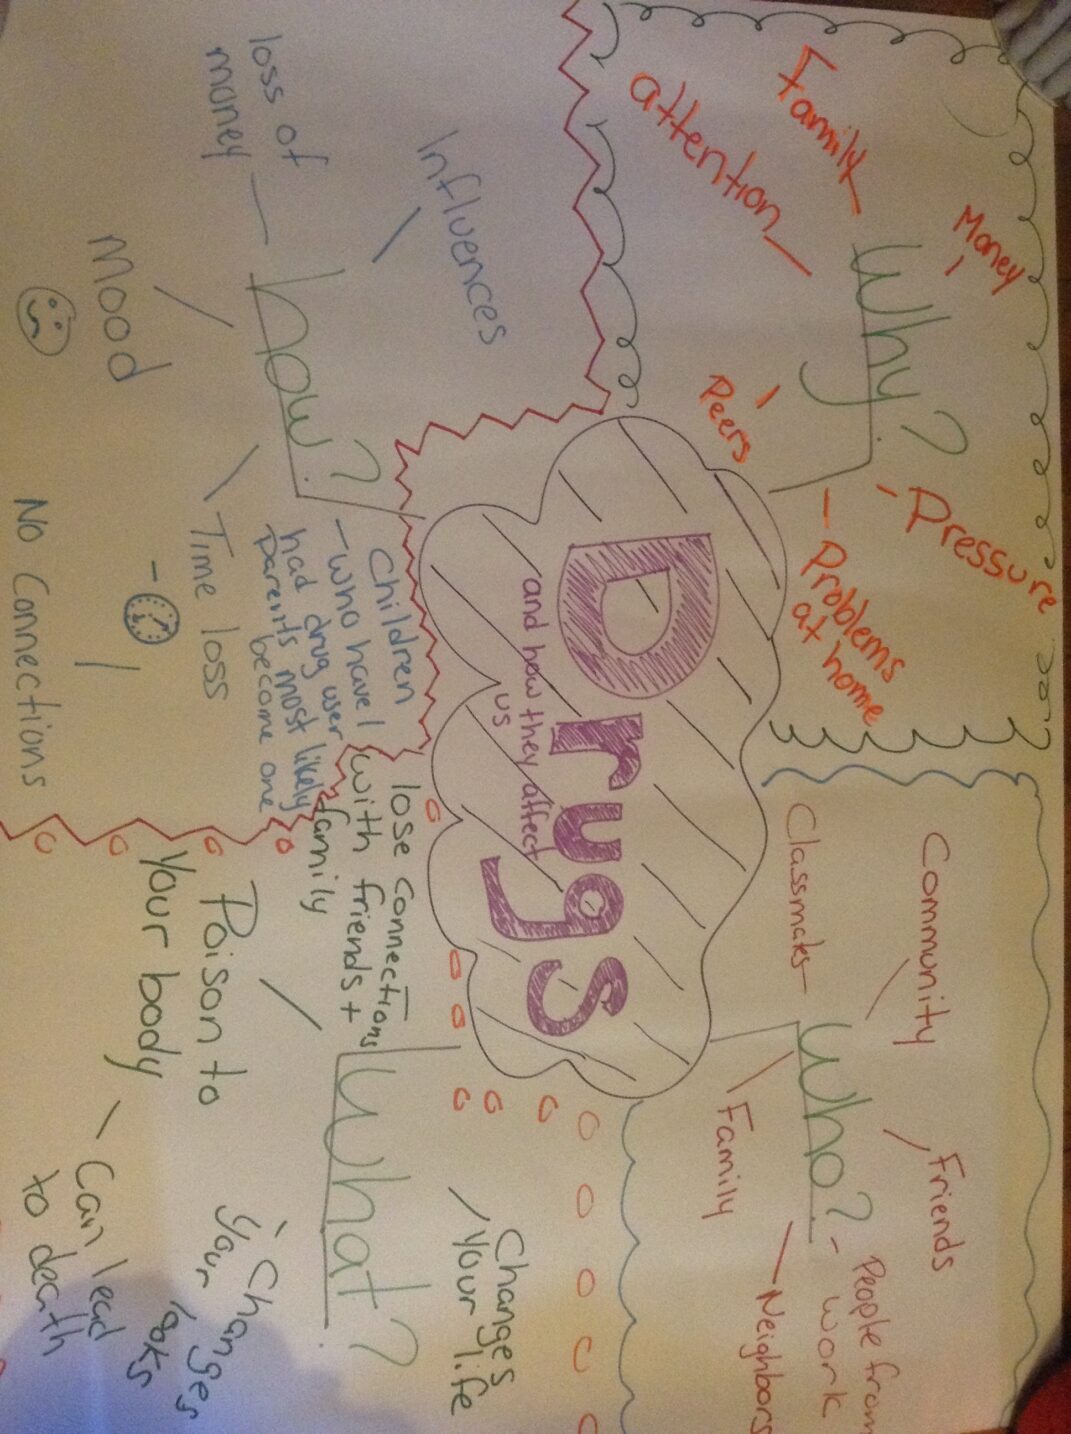 Drugs
and how they affect
us
Why?
Family
Money
attention
Peers
Pressure
Problems
at home
Who?
Community
Classmates
Friends
Family
People from
work
Neighbors
how?
Influences
loss of
money
Mood
Time loss
No Connections
Children
- who have
had drug user
parents most likely
become one
What?
lose connections
with friends +
family
Poison to
Your body
Changes
Your life
Changes
Your looks
Can lead
to death